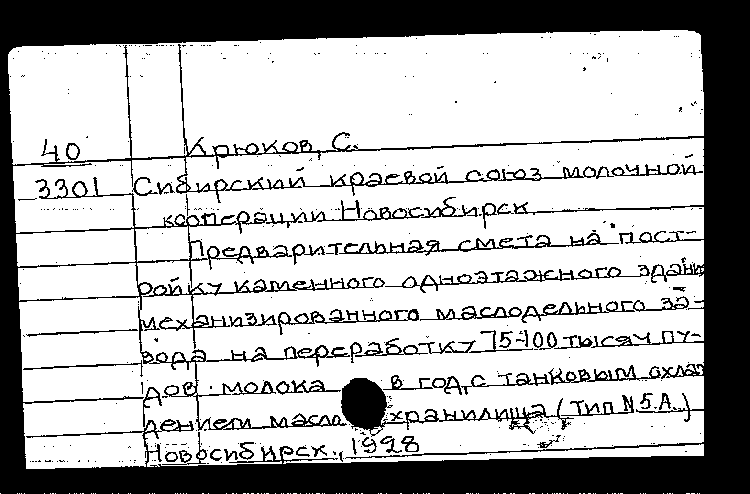 40 Крюков, С.
3301 Сибирский краевой союз молочной
кооперации Новосибирск.
Предварительная смета на пост-
ройку каменного одноэтажного здания
механизированного маслодельного за-
вода на переработку 75-100 тысяч пу-
дов молока в год, с танковым охлаж
дением масло хранилища (тип N 5.А.)
Новосибирск., 1928